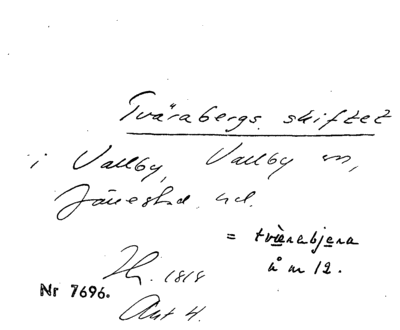 Tvärabergs skiftet
i Vallby, Vallby sn,
Järestad, hd.
= tvärabjæra
å m 12.
H. 1818
Nr 7696.
Akt 4.